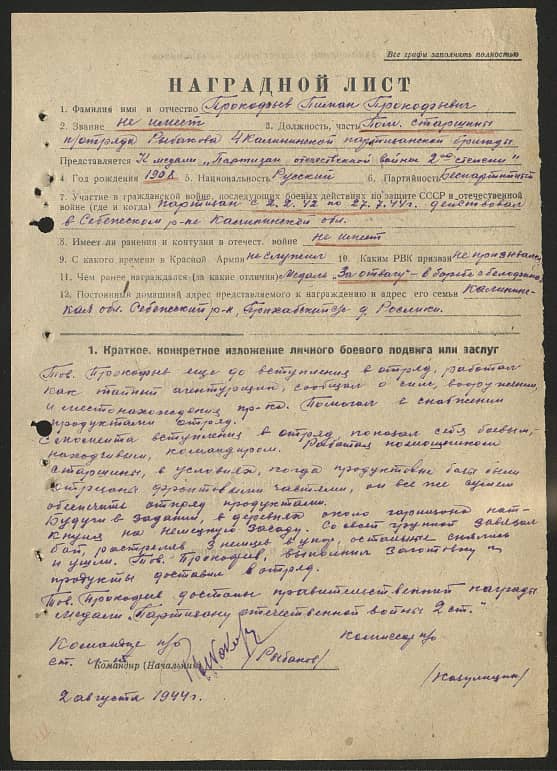 Все графы заполнять полностью
НАГРАДНОЙ ЛИСТ
1. Фамилия имя и отчество Прокофьев Прокофьевич
2. Звание не имеет 3. Должность, часть Пом. старшины
п/отряда Рыбакова 4 Калининской партизанской бригады
Представляется К медали „Партизан отечественной войны 2ой степени"
4. Год рождения 1908 5. Национальность Русский 6. Партийность Беспартийный
7. Участие в гражданской войне, последующих боевых действиях по защите СССР и отечественной
войне (где и когда) Партизан с 2.2.42 по 27.7.44г. действовал
в Себежском р-не Калининской обл.
8. Имеет ли ранения и контузия в отечест. войне не имеет
9. С какого времени в Красной Армии не служил 10. Каким РВК призван не призывался
11. Чем ранее награждался (за какие отличия) Медаль „За отвагу" – в борьбе с
12. Постоянный домашний адрес представляемого к награждению и адрес его семьи Калинин-
ская обл. Себежский р-н д. Рослики.
1. Краткое, конкретное изложение личного боевого подвига или заслуг
Тов. Прокофьев еще до вступления в отряд, работал
как сообщал о силе, вооружении,
и местонахождении пр-ка. Помогал в снабжении
продуктами отряд.
С момента вступления в отряд показал себя боевым,
находчивым, командиром. Работая помощником
старшины, в условиях, когда продуктовые были
фронтовыми частями, он все же сумел
обеспечить отряд продуктами.
Будучи в задании, в деревнях около гарнизона нат-
кнулся на немецкую засаду. Со своей группой завязал
бой, расстрелял 3 немцев в упор, остальные снялись
и ушли. Тов. Прокофьев, выполнил заготовку и
продукты доставил в отряд.
Тов. Прокофьев достоин правительственной награды
медали „Партизану отечественной войны 2 ст."
Командир п/о
Комиссар п/о
ст. л-т
Командир (Начальник) /Рыбаков/
2 августа 1944г.